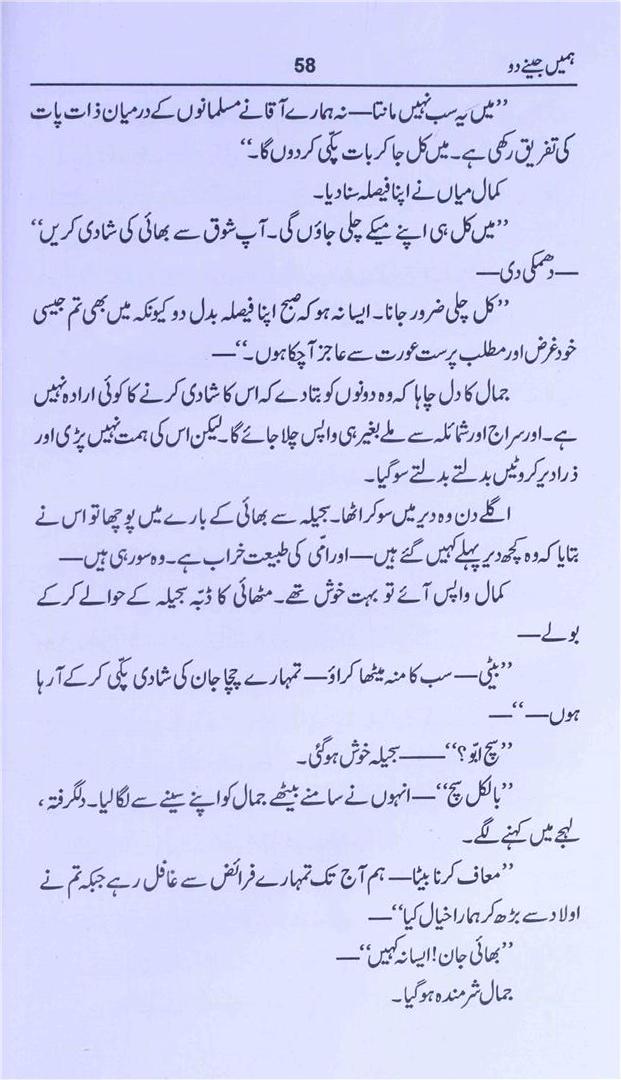 ہمیں جینے دو 58
’’میں یہ سب نہیں مانتا— نہ ہمارے آقا نے مسلمانوں کے درمیان ذات پات
کی تفریق رکھی ہے۔ میں کل جا کر بات پکّی کر دوں گا۔‘‘
کمال میاں نے اپنا فیصلہ سنا دیا۔
’’میں کل ہی اپنے میکے چلی جاؤں گی۔ آپ شوق سے بھائی کی شادی کریں‘‘
—دھمکی دی—
’’کل چلی ضرور جانا۔ ایسا نہ ہو کہ صبح اپنا فیصلہ بدل دو کیونکہ میں بھی تم جیسی
خود غرض اور مطلب پرست عورت سے عاجز آچکا ہوں۔‘‘—
جمال کا دل چاہا کہ وہ دونوں کو بتا دے کہ اس کا شادی کرنے کا کوئی ارادہ نہیں
ہے۔ اور سراج اور شمائلہ سے ملے بغیر ہی واپس چلا جائے گا۔ لیکن اس کی ہمت نہیں پڑی اور
ذرا دیر کروٹیں بدلتے بدلتے سو گیا۔
اگلے دن وہ دیر میں سو کر اٹھا۔ سجیلہ سے بھائی کے بارے میں پوچھا تو اس نے
بتایا کہ وہ کچھ دیر پہلے کہیں گئے ہیں— اور امّی کی طبیعت خراب ہے۔ وہ سو رہی ہیں—
کمال واپس آئے تو بہت خوش تھے۔ مٹھائی کا ڈبّہ سجیلہ کے حوالے کر کے
بولے—
’’بیٹی— سب کا منہ میٹھا کراؤ— تمہارے چچا جان کی شادی پکّی کر کے آ رہا
ہوں—‘‘—
’’سچ ابّو؟‘‘—— سجیلہ خوش ہو گئی۔
’’بالکل سچ‘‘— انہوں نے سامنے بیٹھے جمال کو اپنے سینے سے لگا لیا۔ دلگرفتہ،
لہجے میں کہنے لگے۔
’’معاف کرنا بیٹا— ہم آج تک تمہارے فرائض سے غافل رہے جبکہ تم نے
اولاد سے بڑھ کر ہمارا خیال کیا‘‘—
’’بھائی جان! ایسا نہ کہیں‘‘—
جمال شرمندہ ہو گیا۔